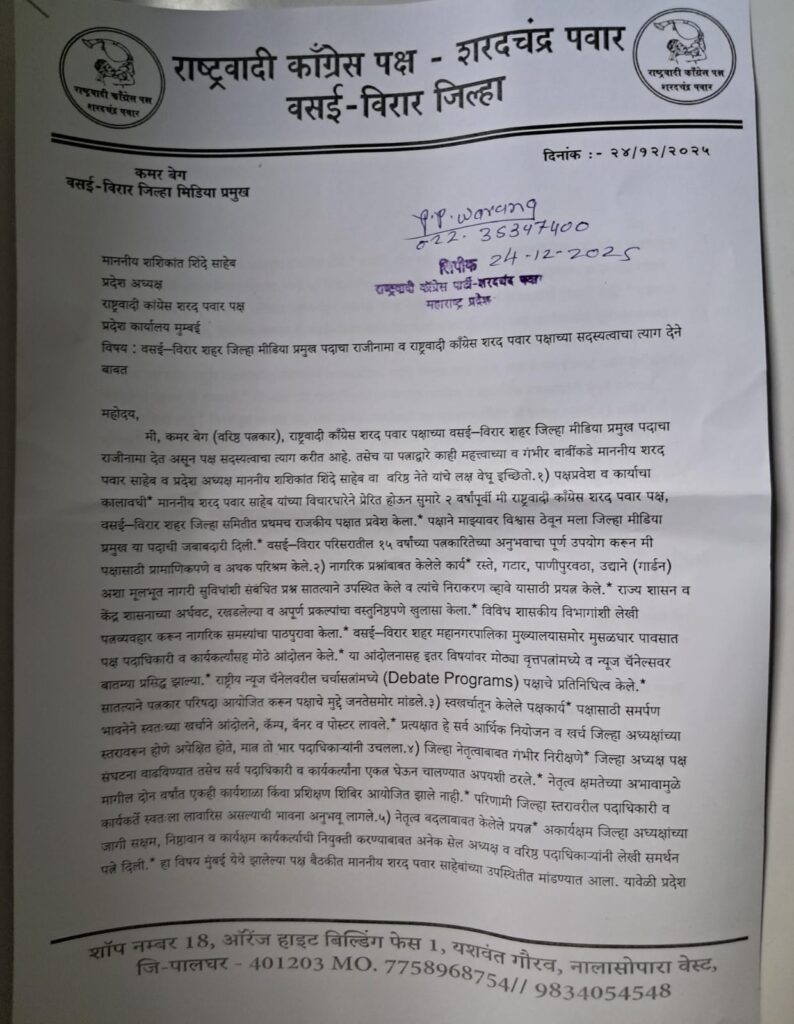 राष्ट्रवादी काँग्रेस पक्ष - शरदचंद्र पवार
वसई-विरार जिल्हा
राष्ट्रवादी काँग्रेस पक्ष
शरदचंद्र पवार
राष्ट्रवादी काँग्रेस पक्ष
शरदचंद्र पवार
दिनांक :- २४/१२/२०२५
कमर बेग
वसई-विरार जिल्हा मिडिया प्रमुख
P.P. Warang
022. 35347400
लिपीक 24-12-2025
राष्ट्रवादी काँग्रेस पार्टी-शरदचंद्र पवार
महाराष्ट्र प्रदेश
माननीय शशिकांत शिंदे साहेब
प्रदेश अध्यक्ष
राष्ट्रवादी कांग्रेस शरद पवार पक्ष
प्रदेश कार्यालय मुम्बई
विषय : वसई–विरार शहर जिल्हा मीडिया प्रमुख पदाचा राजीनामा व राष्ट्रवादी काँग्रेस शरद पवार पक्षाच्या सदस्यत्वाचा त्याग देने
बाबत
महोदय,
मी, कमर बेग (वरिष्ठ पत्रकार), राष्ट्रवादी काँग्रेस शरद पवार पक्षाच्या वसई–विरार शहर जिल्हा मीडिया प्रमुख पदाचा
राजीनामा देत असून पक्ष सदस्यत्वाचा त्याग करीत आहे. तसेच या पत्राद्वारे काही महत्त्वाच्या व गंभीर बाबींकडे माननीय शरद
पवार साहेब व प्रदेश अध्यक्ष माननीय शशिकांत शिंदे साहेब वा वरिष्ठ नेते यांचे लक्ष वेधू इच्छितो.१) पक्षप्रवेश व कार्याचा
कालावधी* माननीय शरद पवार साहेब यांच्या विचारधारेने प्रेरित होऊन सुमारे २ वर्षांपूर्वी मी राष्ट्रवादी काँग्रेस शरद पवार पक्ष,
वसई–विरार शहर जिल्हा समितीत प्रथमच राजकीय पक्षात प्रवेश केला.* पक्षाने माझ्यावर विश्वास ठेवून मला जिल्हा मीडिया
प्रमुख या पदाची जबाबदारी दिली.* वसई–विरार परिसरातील १५ वर्षांच्या पत्रकारितेच्या अनुभवाचा पूर्ण उपयोग करून मी
पक्षासाठी प्रामाणिकपणे व अथक परिश्रम केले.२) नागरिक प्रश्नांबाबत केलेले कार्य* रस्ते, गटार, पाणीपुरवठा, उद्याने (गार्डन)
अशा मूलभूत नागरी सुविधांशी संबंधित प्रश्न सातत्याने उपस्थित केले व त्यांचे निराकरण व्हावे यासाठी प्रयत्न केले.* राज्य शासन व
केंद्र शासनाच्या अर्धवट, रखडलेल्या व अपूर्ण प्रकल्पांचा वस्तुनिष्ठपणे खुलासा केला.* विविध शासकीय विभागांशी लेखी
पत्रव्यवहार करून नागरिक समस्यांचा पाठपुरावा केला.* वसई–विरार शहर महानगरपालिका मुख्यालयासमोर मुसळधार पावसात
पक्ष पदाधिकारी व कार्यकर्त्यांसह मोठे आंदोलन केले.* या आंदोलनासह इतर विषयांवर मोठ्या वृत्तपत्रांमध्ये व न्यूज चॅनेल्सवर
बातम्या प्रसिद्ध झाल्या.* राष्ट्रीय न्यूज चॅनेलवरील चर्चासत्रांमध्ये (Debate Programs) पक्षाचे प्रतिनिधित्व केले.*
सातत्याने पत्रकार परिषदा आयोजित करून पक्षाचे मुद्दे जनतेसमोर मांडले.३) स्वखर्चातून केलेले पक्षकार्य* पक्षासाठी समर्पण
भावनेने स्वतःच्या खर्चाने आंदोलने, कॅम्प, बॅनर व पोस्टर लावले.* प्रत्यक्षात हे सर्व आर्थिक नियोजन व खर्च जिल्हा अध्यक्षांच्या
स्तरावरून होणे अपेक्षित होते, मात्र तो भार पदाधिकाऱ्यांनी उचलला.४) जिल्हा नेतृत्वाबाबत गंभीर निरीक्षणे* जिल्हा अध्यक्ष पक्ष
संघटना वाढविण्यात तसेच सर्व पदाधिकारी व कार्यकर्त्यांना एकत्र घेऊन चालण्यात अपयशी ठरले.* नेतृत्व क्षमतेच्या अभावामुळे
मागील दोन वर्षांत एकही कार्यशाळा किंवा प्रशिक्षण शिबिर आयोजित झाले नाही.* परिणामी जिल्हा स्तरावरील पदाधिकारी व
कार्यकर्ते स्वतःला लावारिस असल्याची भावना अनुभवू लागले.५) नेतृत्व बदलाबाबत केलेले प्रयत्न* अकार्यक्षम जिल्हा अध्यक्षांच्या
जागी सक्षम, निष्ठावान व कार्यक्षम कार्यकर्त्याची नियुक्ती करण्याबाबत अनेक सेल अध्यक्ष व वरिष्ठ पदाधिकाऱ्यांनी लेखी समर्थन
पत्रे दिली.* हा विषय मुंबई येथे झालेल्या पक्ष बैठकीत माननीय शरद पवार साहेबांच्या उपस्थितीत मांडण्यात आला. यावेळी प्रदेश
शॉप नम्बर 18, ऑरेंज हाइट बिल्डिंग फेस 1, यशवंत गौरव, नालासोपारा वेस्ट,
जि-पालघर - 401203 MO. 7758968754// 9834054548